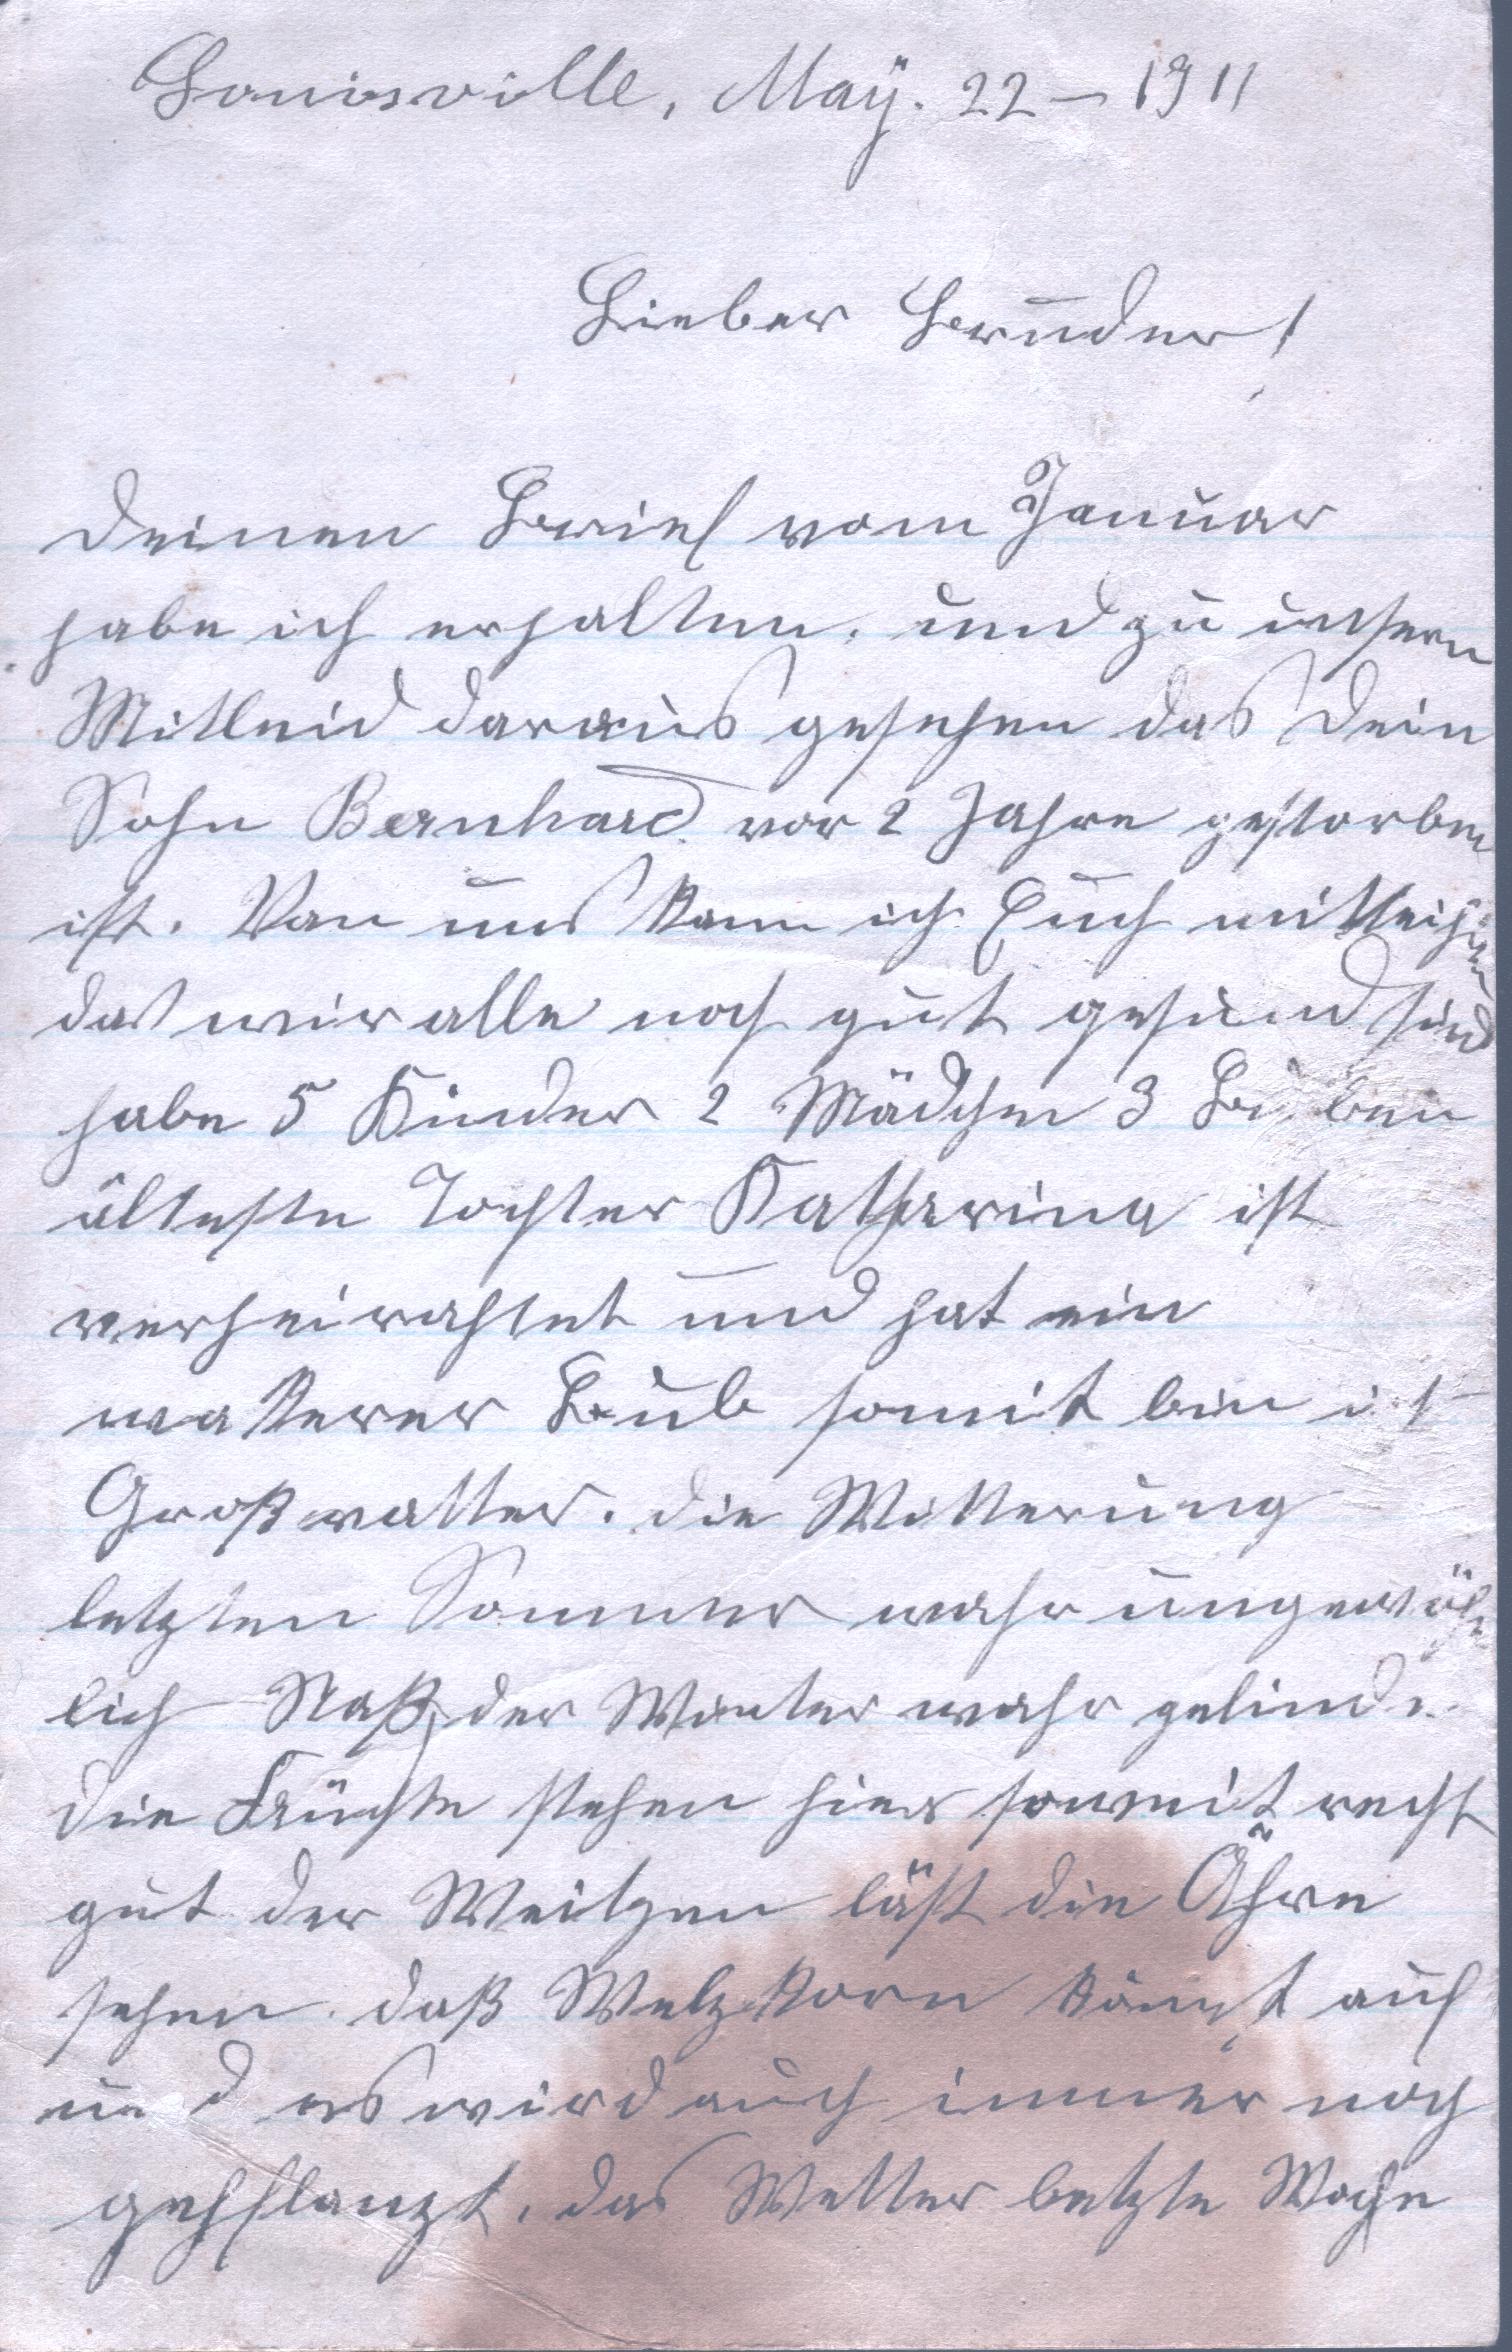 Louisville, Maÿ. 22 – 1911
Lieber Bruder!
Deinen Brief vom Januar
habe ich erhalten, und zu unsern
Mitleid daraus gesehen das Dein
Sohn Bernhard vor 2 Jahre gestorben
ist. Von uns kann ich Euch mittheilen
das wir alle noch gut gesund sind
habe 5 Kinder 2 Mädchen 3 Buben
älteste Tochter Katharina ist
verheirahtet und hat ein
wakerer Bub somit bin ich
Großvatter. die Witterung
letzten Sommer wahr ungewöhn
lich Naß, der Winter wahr gelinde.
die Früchte stehen hier soweit recht
gut der Weitzen läst die Ähre
sehen. daß Welzkorn kömpt auf
und es wird auch immer noch
gepflanzt. das Wetter letzte Woche